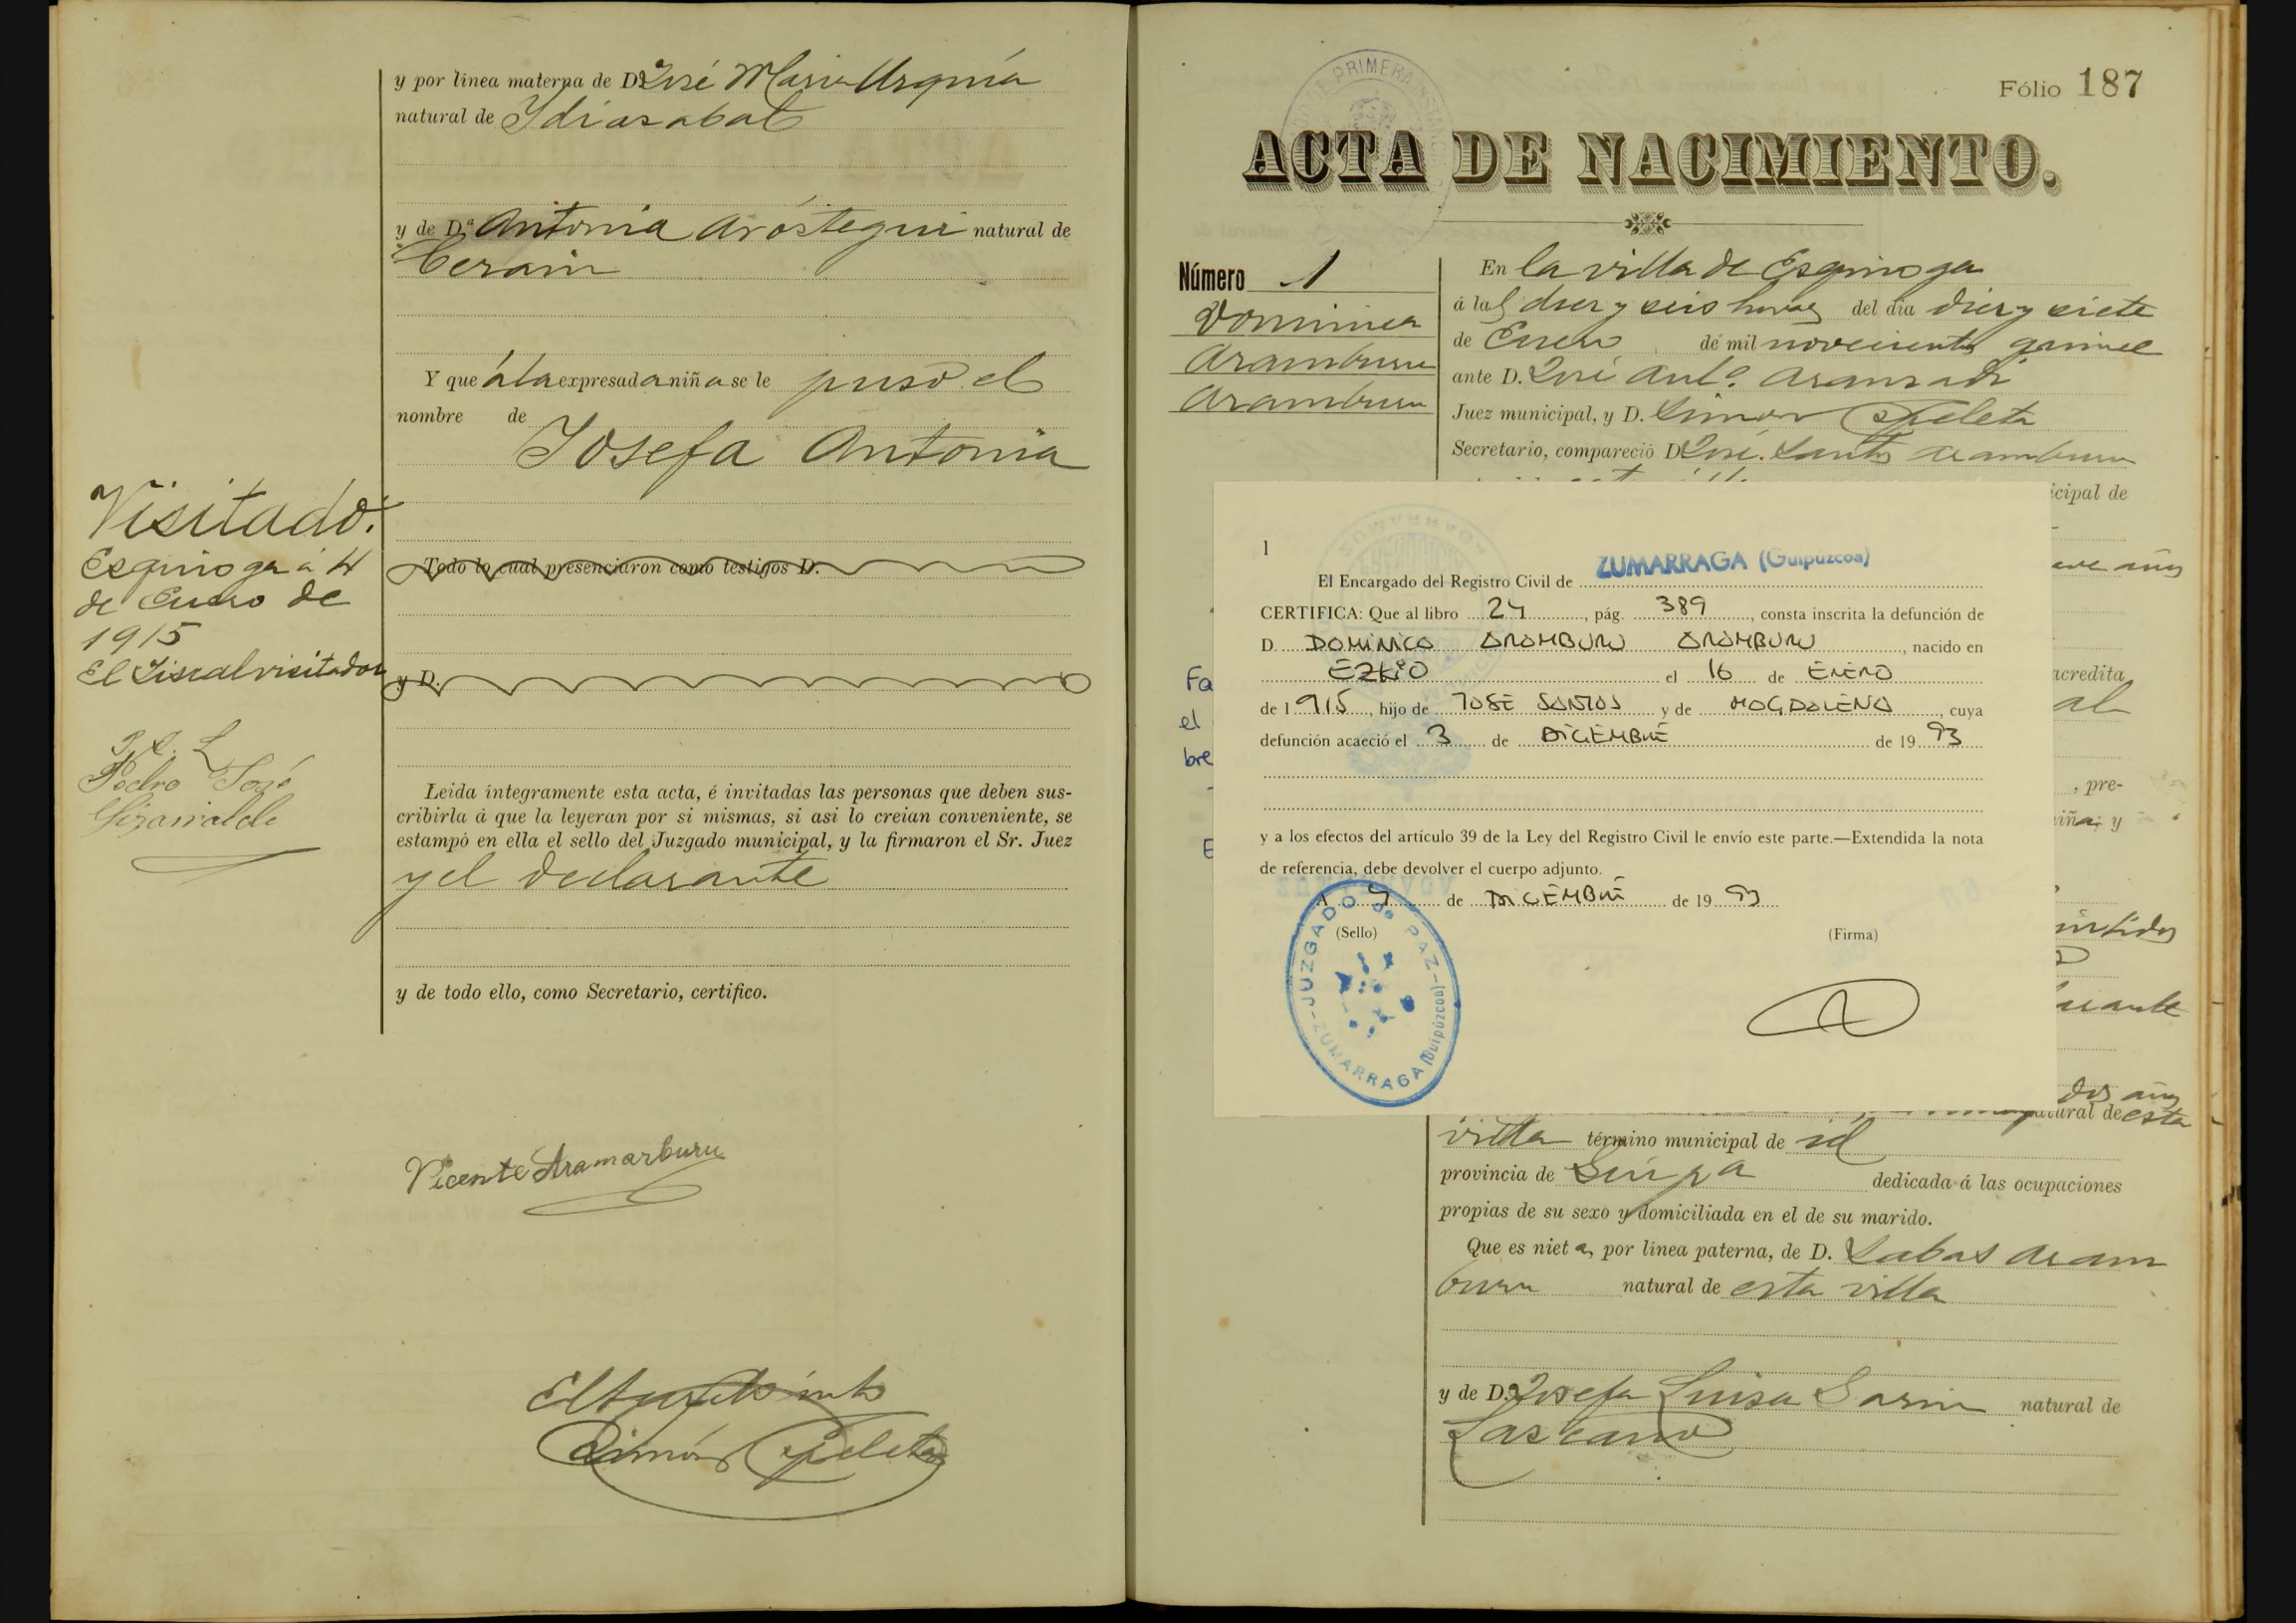 y por línea materna de D. José Maria Urquía
natural de Idiazabal
y de D.ª Antonia Aróstegui natural de
Cerain
Y que á la expresada niña se le puso el
nombre de
Josefa Antonia
Visitado.
Esquioga á 4
de Enero de
1915
El Fiscal visitador
Pedro José
Todo lo cual presenciaron como testigos D.
y D.
Leida íntegramente esta acta, é invitadas las personas que deben sus-
cribirla á que la leyeran por si mismas, si asi lo creian conveniente, se
estampó en ella el sello del Juzgado municipal, y la firmaron el Sr. Juez
y el declarante
y de todo ello, como Secretario, certifico.
Vicente Aramarburu
Simón
Fólio 187
ACTA DE NACIMIENTO.
Número 1
Dominica
Aramburu
Aramburu
En la villa de Esquioga
á las diez y seis horas del dia diez y siete
de Enero de mil novecientos quince
ante D. José Ant.º Aranzadi
Juez municipal, y D. Simon
Secretario, compareció D. José Santos Aramburu
icipal de
eve años
acredita
al
, pre-
niña; y
Fa
el
bre
E
1
ZUMARRAGA (Guipúzcoa)
El Encargado del Registro Civil de
CERTIFICA: Que al libro 24, pág. 389, consta inscrita la defunción de
D. DOMINICA ARAMBURU ARAMBURU, nacido en
EZKIO el 16 de ENERO
de 1915, hijo de JOSE SANTOS y de MAGDALENA, cuya
defunción acaeció el 3 de DICIEMBRE de 19 93
y a los efectos del artículo 39 de la Ley del Registro Civil le envío este parte.—Extendida la nota
de referencia, debe devolver el cuerpo adjunto.
de DICIEMBRE de 19 93
(Sello)
(Firma)
JUZGADO de PAZ - ZUMARRAGA (Guipúzcoa)
dos años
natural de esta
villa término municipal de id
provincia de Guipa dedicada á las ocupaciones
propias de su sexo y domiciliada en el de su marido.
Que es nieta, por línea paterna, de D. Sabas Aram
buru natural de esta villa
y de D.ª Josefa Luisa Sarin natural de
Lazcano